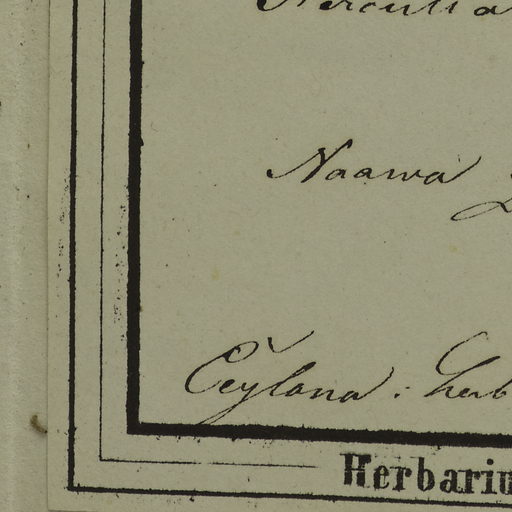 Naawa
Ceylona: herb
Herbariu